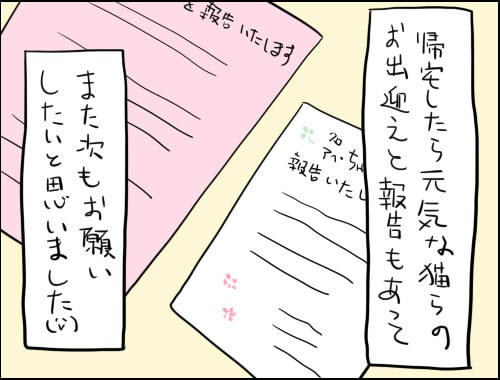 帰宅したら元気な猫らの
お出迎えと報告もあって
クロ
アベちゃ
報告いたし
と報告いたします
また次もお願い
したいと思いました(^^)